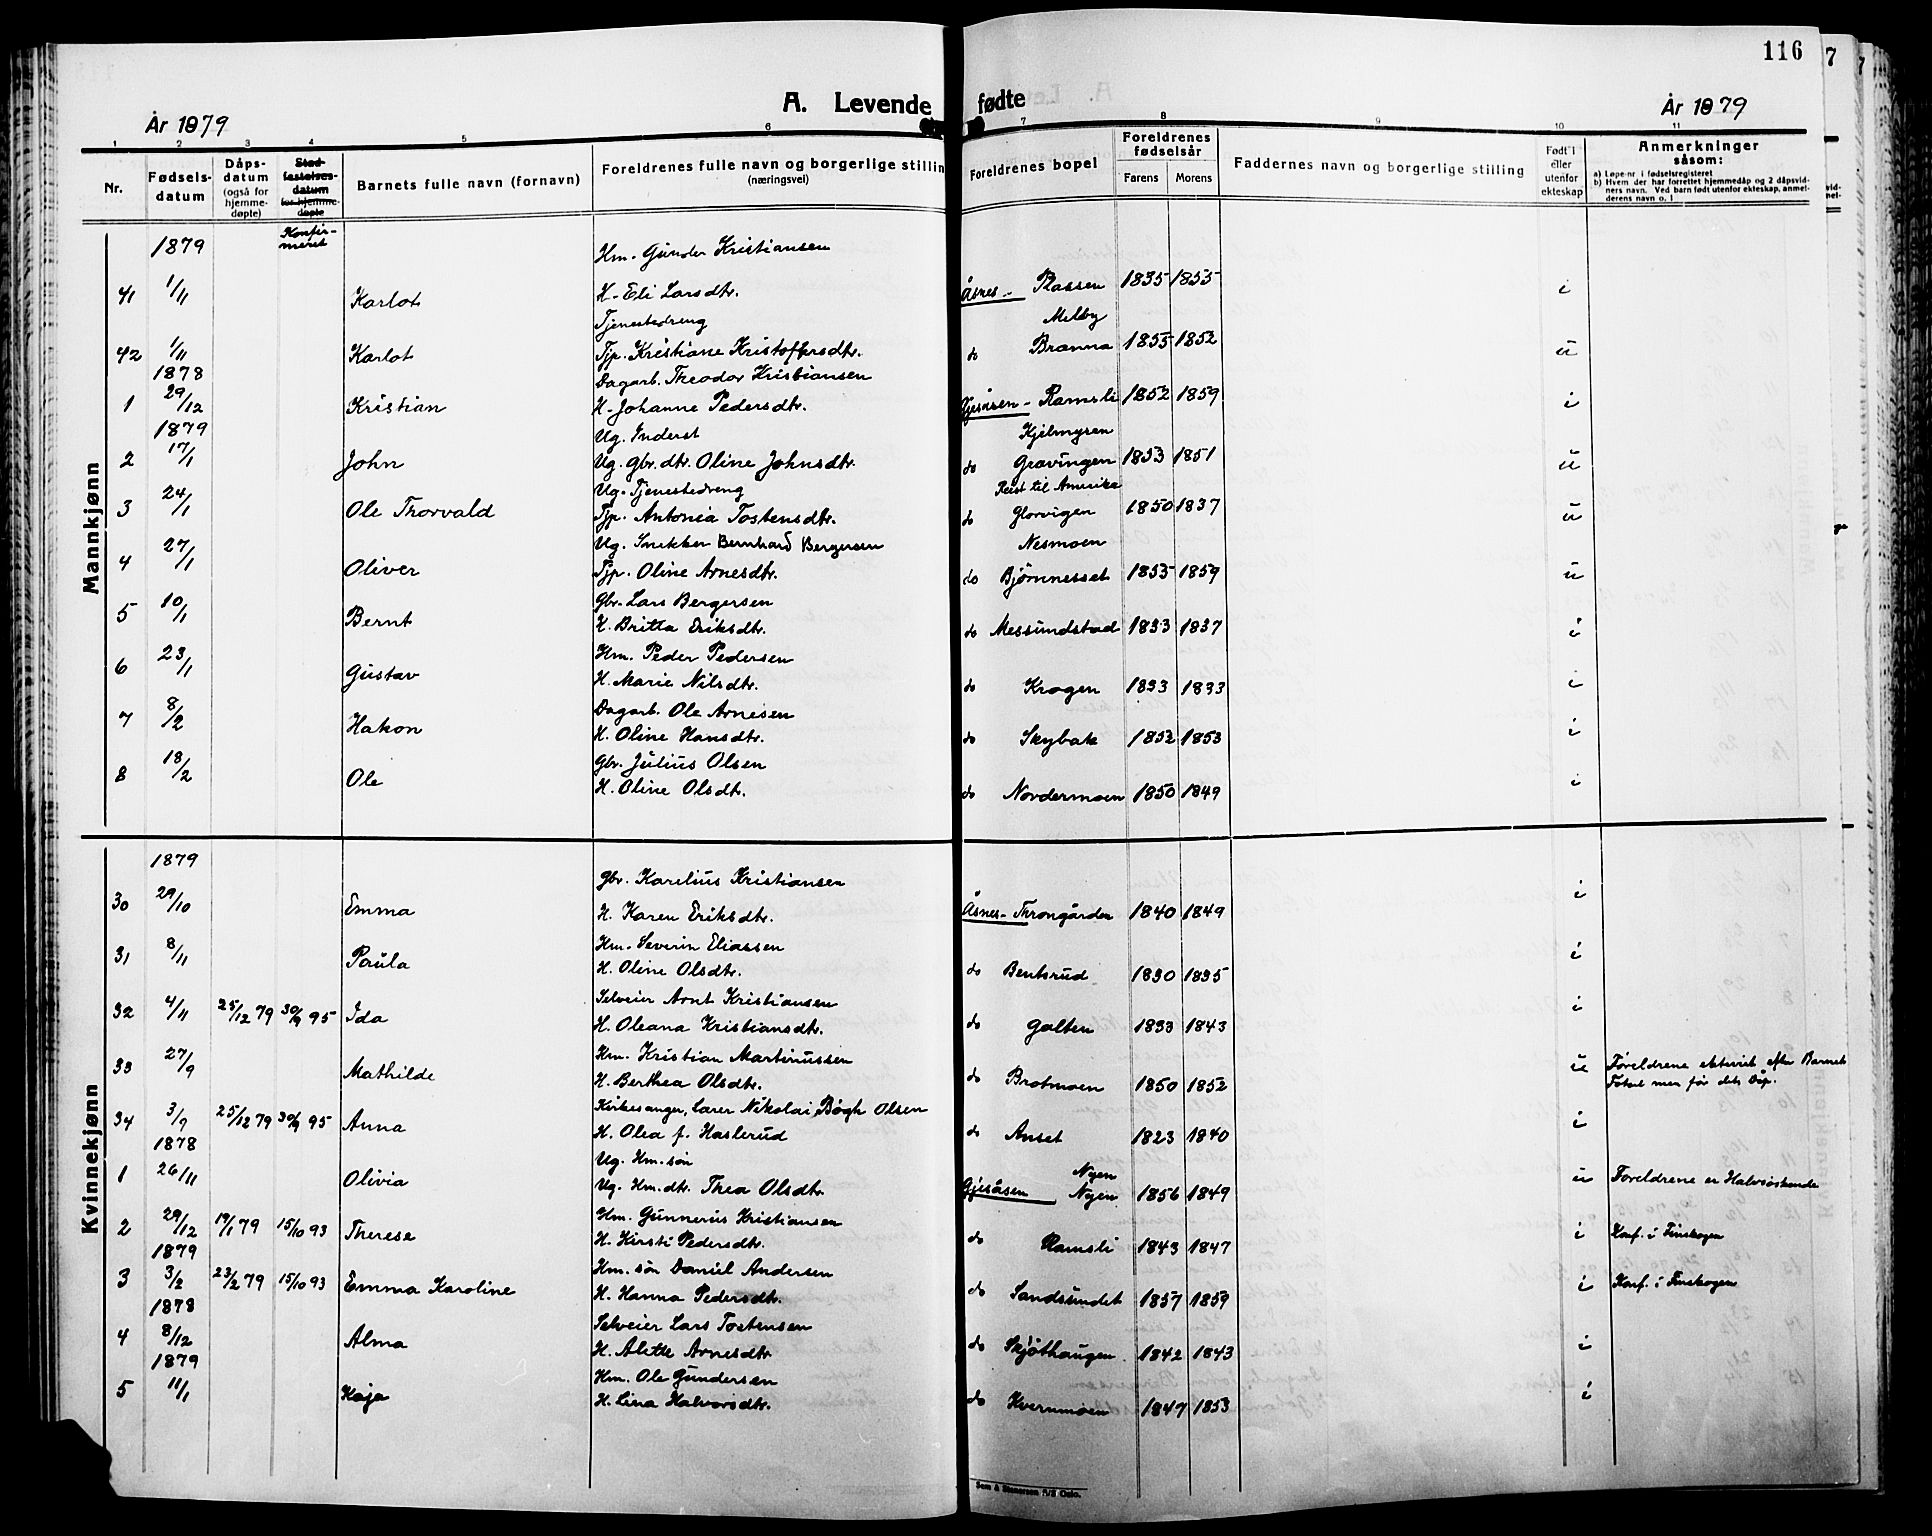 116
A. Levende fødte
År 1879
År 1879
1 2 3 4 5 6 7 8 9 10 11
Nr. Fødselsdatum Dåpsdatum (også for hjemmedøpte) Stadfestelsesdatum for hjemmedøpte Barnets fulle navn (fornavn) Foreldrenes fulle navn og borgerlige stilling (næringsvei) Foreldrenes bopel Foreldrenes fødselsår Farens Morens Faddernes navn og borgerlige stilling Født i eller utenfor ekteskap Anmerkninger såsom:
a) Løpe-nr. i fødselsregisteret
b) Hvem der har forrettet hjemmedåp og 2 dåpsvidners navn. Ved barn født utenfor ekteskap, anmelderens navn o. l
Konfirmeret
Mannkjønn
1879 Hm. Gunder Kristiansen
41 1/11 Karlot H. Eli Larsdtr. Åsnes - Plassen 1835 1855 i
Tjenestedreng Melby
42 1/11 Karlot Tjp. Kristiane Kristoffersdtr. do Branna 1855 1852 u
1878 Dagarb. Theodor Kristiansen
1 29/12 Kristian H. Johanne Pedersdtr. Gjesåsen - Ramsli 1852 1859 i
1879 Ug. Inderst Kjelmyren
2 17/1 John Ug. Gbr. dtr. Oline Johnsdtr. do Gravingen 1833 1851 u
Ug. Tjenestedreng Reist til Amerika
3 24/1 Ole Thorvald Tjp. Antonia Tostensdtr. do Glorvigen 1850 1837 u
Ug. Snekker Bernhard Bergersen Nesmoen
4 27/1 Oliver Tjp. Oline Arnesdtr. do Bjørnnesset 1855 1859 u
Gbr. Lars Bergersen
5 10/1 Bernt H. Britta Eriksdtr. do Messundstad 1833 1837 i
Hm. Peder Pedersen
6 23/1 Gustav H. Marie Nilsdtr. do Krogen 1833 1833 i
Dagarb. Ole Arnesen
7 8/2 Hakon H. Oline Hansdtr. do Skybak 1852 1853 i
Gbr. Julius Olsen
8 18/2 Ole H. Oline Olsdtr. do Nordermoen 1850 1849 i
Kvinnekjønn
1879 Gbr. Karelius Kristiansen
30 29/10 Emma H. Karen Eriksdtr. Åsnes - Throngården 1840 1849 i
Hm. Severin Eliassen
31 8/11 Paula H. Oline Olsdtr. do Bentsrud 1830 1835 i
Selveier Arnt Kristiansen
32 4/11 25/12 79 30/9 95 Ida H. Oleana Kristiansdtr. do Galten 1833 1843 i
Hm. Kristian Martinussen
33 27/9 Mathilde H. Berthea Olsdtr. do Brotmoen 1850 1852 u Foreldrene ektevit. efter Barnets Fødsel men før dets Dåp.
Kirkesanger, Lærer Nikolai Bøgh Olsen
34 3/9 25/12 79 30/9 95 Anna H. Olea f. Haslerud do Anset 1823 1840 i
1878 Ug. Hm. søn Nyen
1 26/11 Olivia Ug. Hm. dtr. Thea Olsdtr. Gjesåsen Nyen 1856 1849 u Foreldrene er Halvsøskende
Hm. Gunnerius Kristiansen
2 29/12 19/1 79 15/10 93 Therese H. Kirsti Pedersdtr. do Ramsli 1843 1847 i Konf. i Finskogen
1879 Hm. søn Daniel Andersen
3 3/2 23/2 79 15/10 93 Emma Karoline H. Hanna Pedersdtr. do Sandsundet 1857 1859 i Konf. i Finskogen
1878 Selveier Lars Tostensen
4 8/12 Alma H. Alette Arnesdtr do Skjøthaugen 1842 1843 i
1879 Hm. Ole Gundersen
5 11/1 Kaja H. Lina Halvorsdtr. do Kvernmoen 1847 1853 i
Sem & Stenersen A/S Oslo.